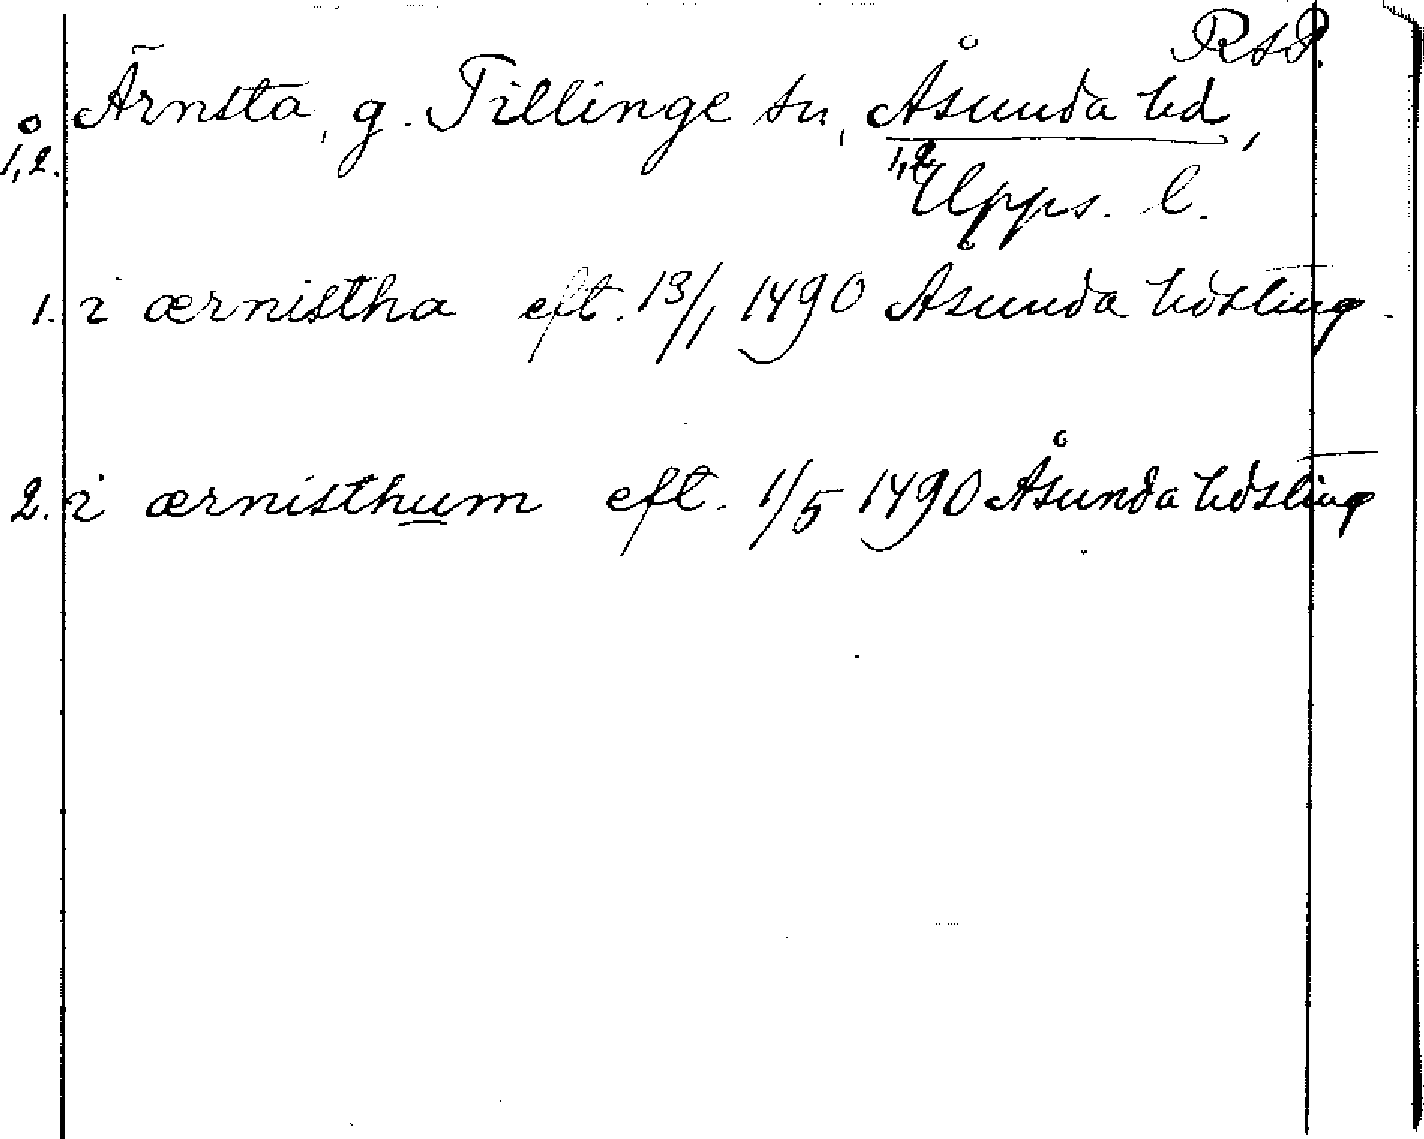 RAP.
Ärnsta, g. Tillinge sn, Åsunda hd,
o 1,2. 1,2 Upps. l.
1. i ærnistha eft. 13/1 1490 Åsunda hdsting.
2. i ærnisthum eft. 1/5 1490 Åsunda hdsting